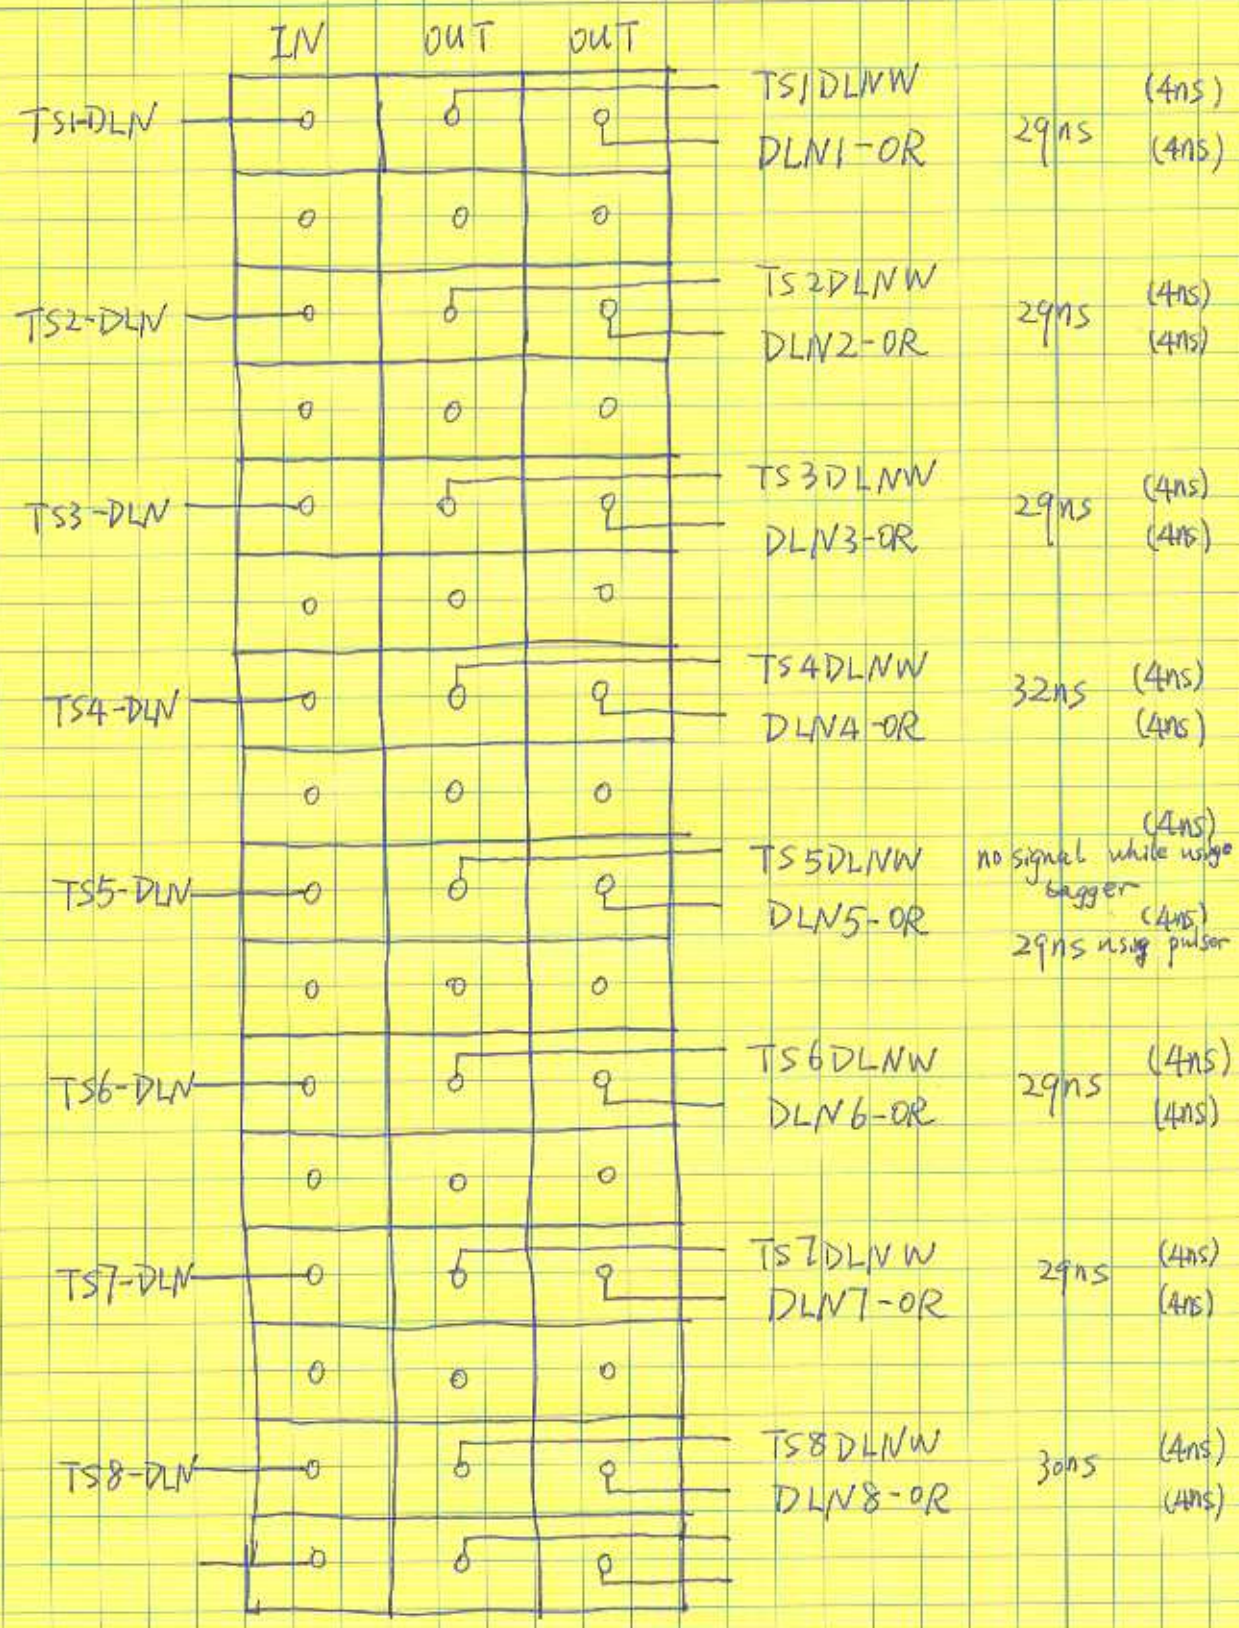 IN OUT OUT
TS1-DLN TS1DLNW 29ns (4ns)
DLN1-OR (4ns)
TS2-DLN TS2DLNW 29ns (4ns)
DLN2-OR (4ns)
TS3-DLN TS3DLNW 29ns (4ns)
DLN3-OR (4ns)
TS4-DLN TS4DLNW 32ns (4ns)
DLN4-OR (4ns)
(4ns)
TS5-DLN TS5DLNW no signal while usinge
tagger
DLN5-OR (4ns)
29ns using pulsor
TS6-DLN TS6DLNW 29ns (4ns)
DLN6-OR (4ns)
TS7-DLN TS7DLNW 29ns (4ns)
DLN7-OR (4ns)
TS8-DLN TS8DLNW 30ns (4ns)
DLN8-OR (4ns)